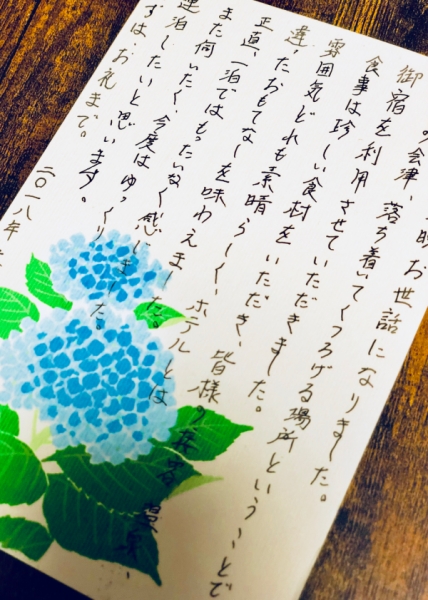 晩お世話になりました。
の会津、落ち着いてくつろげる場所ということで
御宿を利用させていただきました。
食事は珍しい食材をいただき、皆様の接客
雰囲気どれも素晴らしく、ホテルとは
違ったおもてなしを味わえました。
正直、一泊ではもったいなく感じました。
また伺いたく、今度はゆっくり
連泊したいと思います。
ずは、お礼まで。
二〇一八年